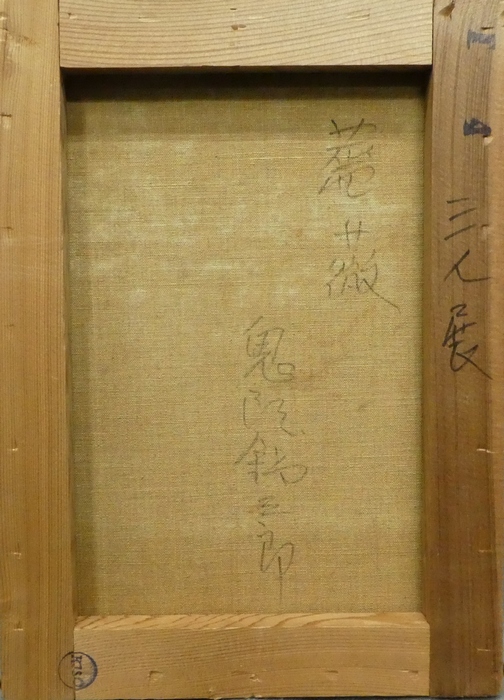 三人展
薔薇
鬼頭鍋三郎